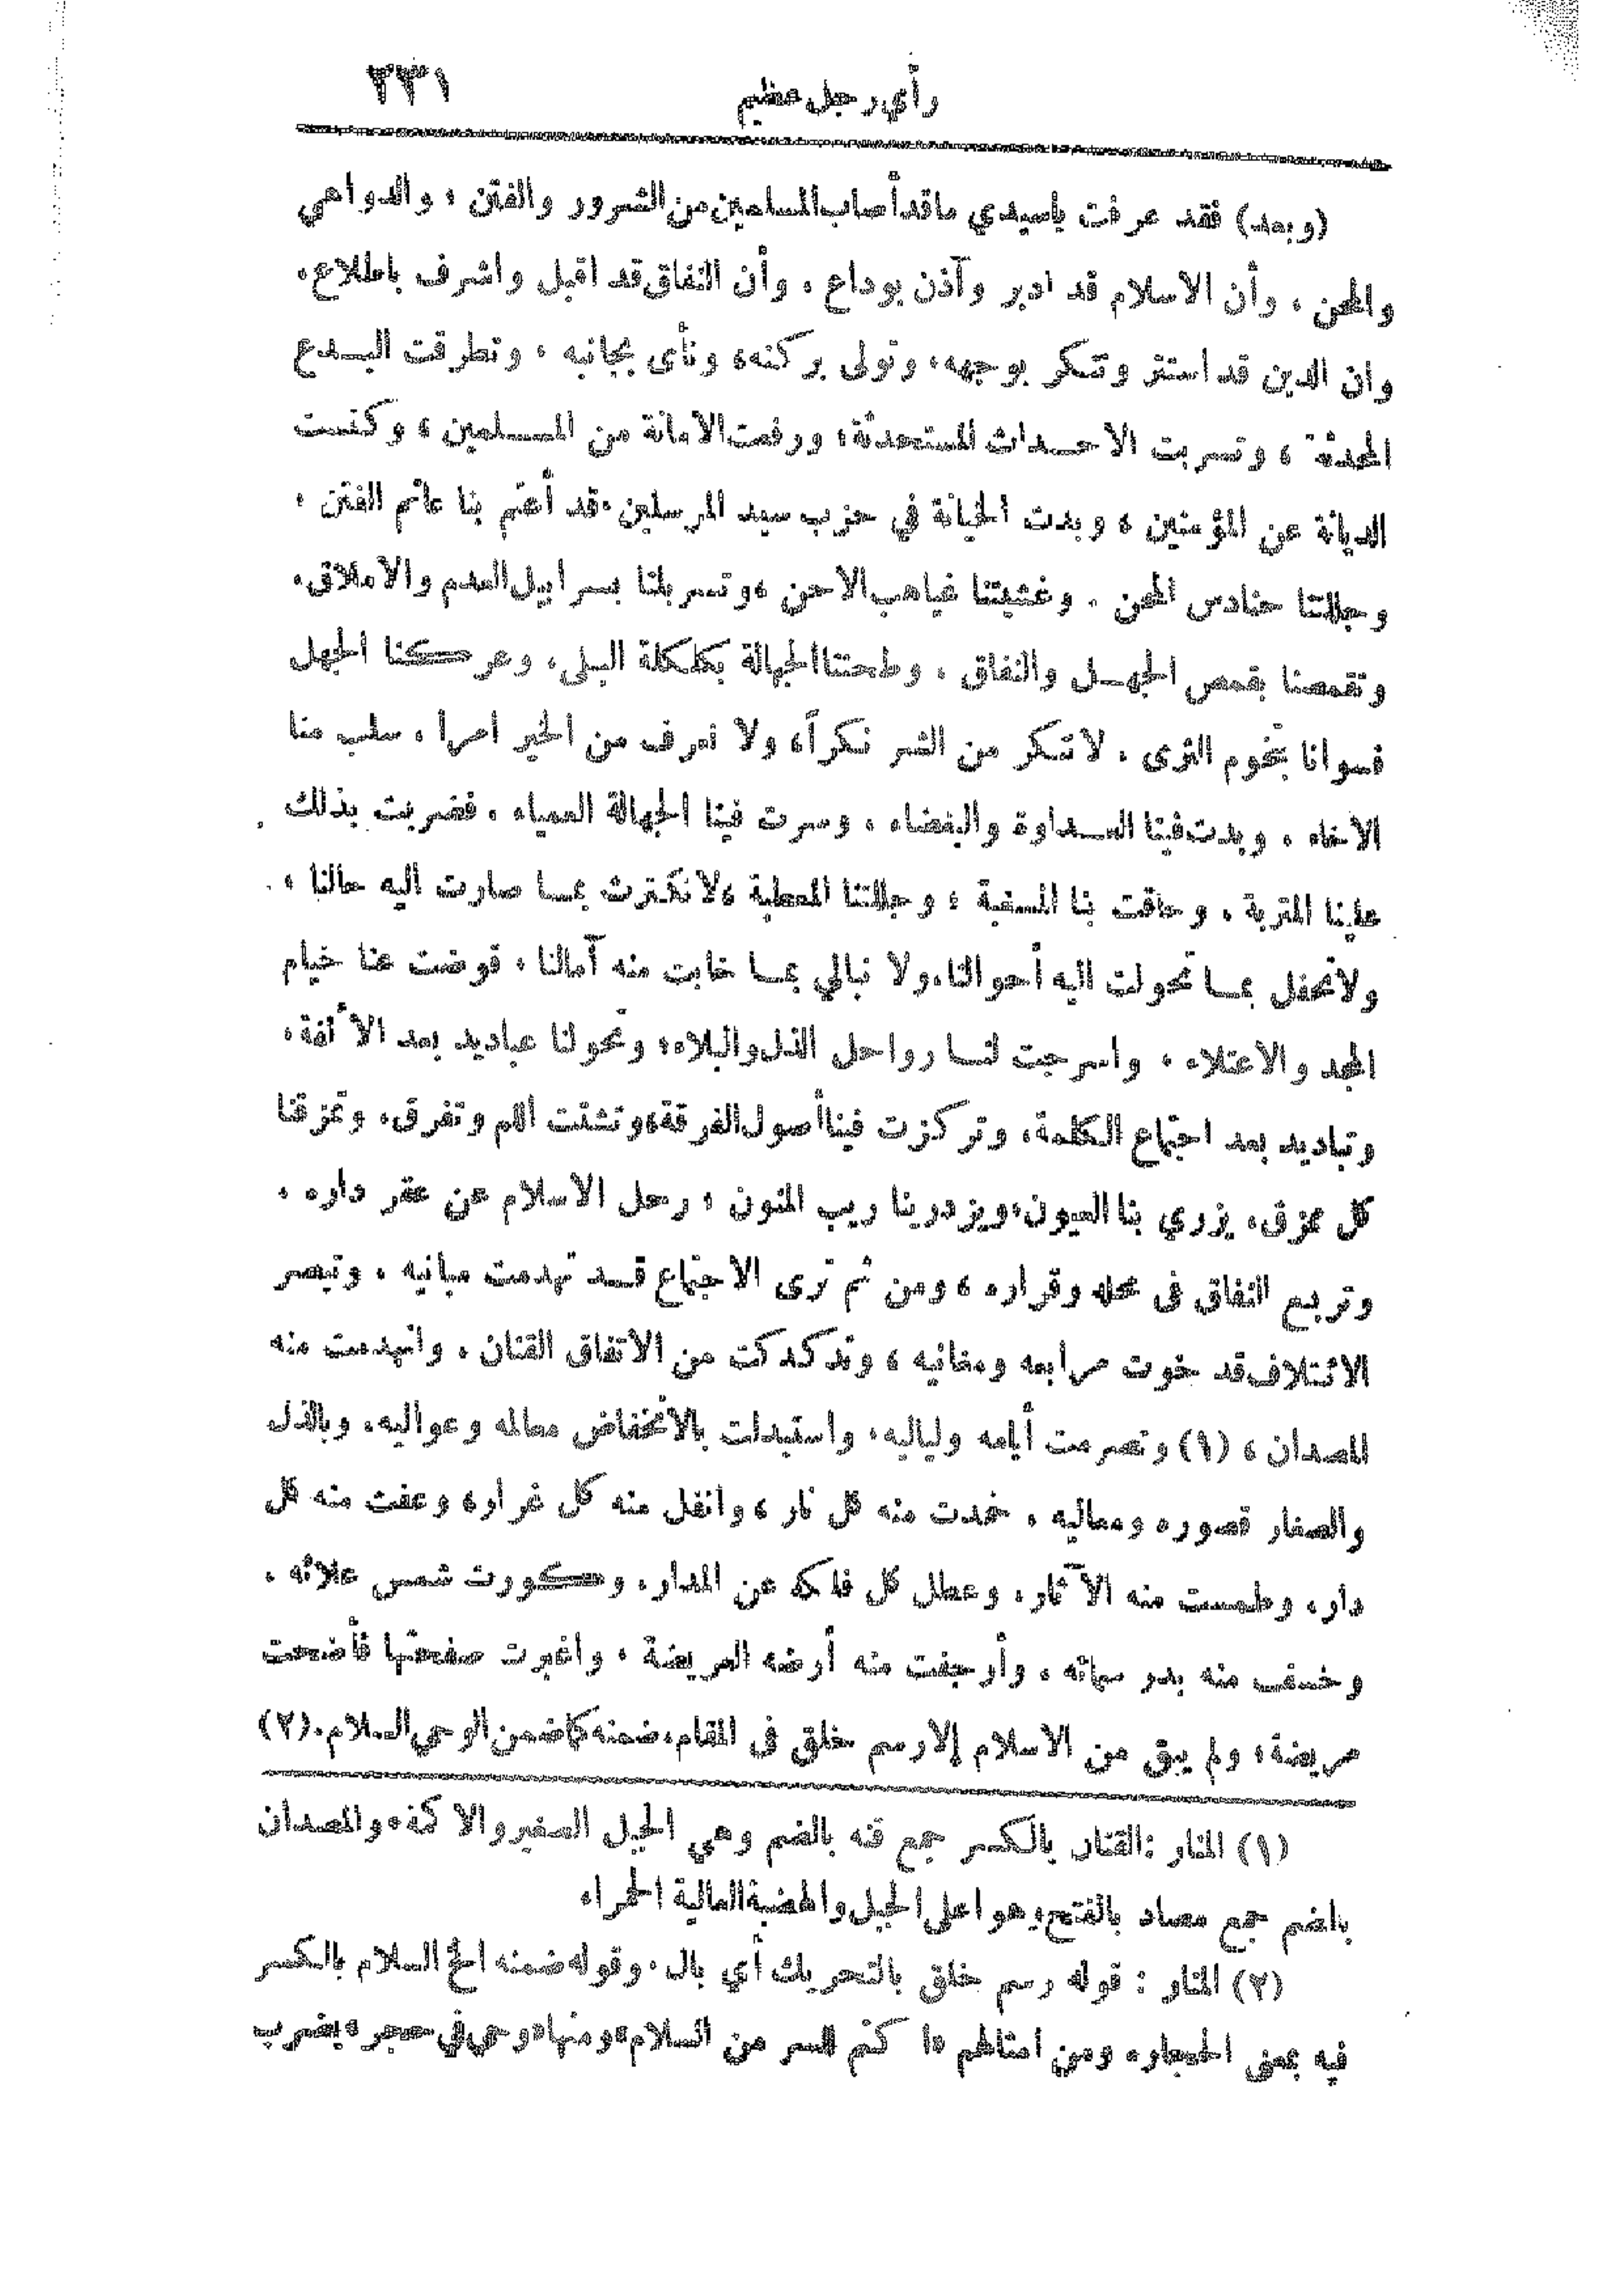 رأي رجل عظيم ٣٣١
(وبعد) فقد عرفت ياسيدي ماقد أصاب المسلمين من الشرور والفتن ، والدواهي
والمحن ، وأن الاسلام قد ادبر وآذن بوداع ، وأن النفاق قد اقبل واشرف باطلاع،
وان الدين قد استتر وتنكر بوجهه، وتولى بركنه، ونأى بجانبه ، وتطرقت البـدع
المحدثة ، وتسربت الاحـداث المستحدثة، ورفعت الامانة من المسـلمين ، وكنست
الديانة عن المؤمنين ، وبدت الخيانة في حزب سيد المرسلين، قد أعتم بنا عاتم الفتن ،
وجللتنا حنادس المحن ، وغشيتنا غياهب الاحن ، وتسربلنا بسرابيل العدم والاملاق،
وتقمصنا بقمص الجهـل والنفاق ، وطحنتنا الجهالة بكلكلة البلى، وعركنا الجهل
فسوانا بتخوم الثرى ، لاننكر من الشر نكراً، ولا نعرف من الخير امرا ، سلب منا
الاخاء ، وبدت فينا العـداوة والبغضاء ، وسرت فينا الجهالة العمياء ، فضربت بذلك
علينا المتربة ، وحاقت بنا المسغبة ، وجللتنا المعطبة ، لانكترث بمـا صارت اليه حالنا ،
ولانحفل بمـا تحولت اليه أحوالنا، ولا نبالي بمـا خابت منه آمالنا ، قوضت عنا خيام
المجد والاعتلاء ، واسرجت لنـا رواحل الذل والبلاء، وتحولنا عباديد بعد الألفة،
وتباديد بعد اجتماع الكلمة، وتركزت فينا أصول الفرقة، وتشتت اللم وتفرق، وتمزقنا
كل ممزق، يزري بنا العيون، ويزدرينا ريب المنون ، رحل الاسلام عن عقر داره ،
وتربع النفاق في محله وقراره ، ومن ثم ترى الاجتماع قـد تهدمت مبانيه ، وتبصر
الائتلاف قد خوت مرابعه ومغانيه ، وتدكدكت من الاتفاق القنان ، وانهدمت منه
المصدان ، (١) وتصرمت أيامه ولياليه، واستبدلت بالانخفاض معالمه وعواليه، وبالذل
والصغار قصوره ومعاليه ، خمدت منه كل نار ، وانفل منه كل غرار، وعفت منه كل
دار، وطمست منه الآثار، وعطل كل فلك عن المدار، وكورت شمس علائه ،
وخسف منه بدر سمائه ، وأرجفت منه أرضه العريضة ، واغبرت صفحتها فأضحت
مريضة، ولم يبق من الاسلام إلا رسم خلق في المقام، ضمنه كما ضمن الوحي السلام.(٢)
(١) المنار : القنان بالكسر جمع قنه بالضم وهي الجبل الصغير والاكمة، والمصدان
بالضم جمع مصاد بالفتح وهو اعلى الجبل والهضبة العالية الحمراء
(٢) المنار : قوله رسم خلق بالتحريك أي بال، وقوله ضمنه الخ السلام بالكسر
فيه بمعنى الحجاره ومن امثالهم «اكتم للسر من السلام» ومنها «وحي في حجر» يضرب